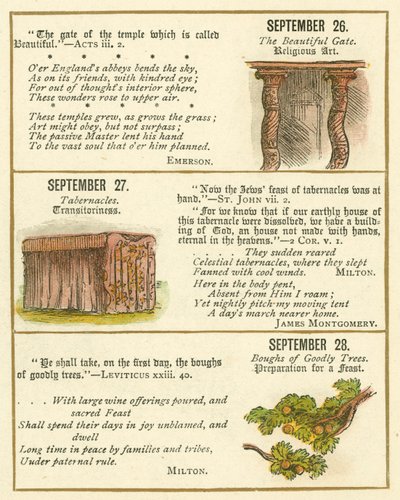 "The gate of the temple which is called
Beautiful."—ACTS iii. 2.
* * * * * *
O'er England's abbeys bends the sky,
As on its friends, with kindred eye;
For out of thought's interior sphere,
These wonders rose to upper air.
* * * * * *
These temples grew, as grows the grass;
Art might obey, but not surpass;
The passive Master lent his hand
To the vast soul that o'er him planned.
EMERSON.
SEPTEMBER 26.
The Beautiful Gate.
Religious Art.
SEPTEMBER 27.
Tabernacles.
Transitoriness.
"Now the Jews' feast of tabernacles was at
hand."—ST. JOHN vii. 2.
"For we know that if our earthly house of
this tabernacle were dissolved, we have a build-
ing of God, an house not made with hands,
eternal in the heavens."—2 COR. v. 1.
. . . . They sudden reared
Celestial tabernacles, where they slept
Fanned with cool winds. MILTON.
Here in the body pent,
Absent from Him I roam;
Yet nightly pitch my moving tent
A day's march nearer home.
JAMES MONTGOMERY.
"Ye shall take, on the first day, the boughs
of goodly trees."—LEVITICUS xxiii. 40.
. . . With large wine offerings poured, and
sacred Feast
Shall spend their days in joy unblamed, and
dwell
Long time in peace by families and tribes,
Uuder paternal rule.
MILTON.
SEPTEMBER 28.
Boughs of Goodly Trees.
Preparation for a Feast.